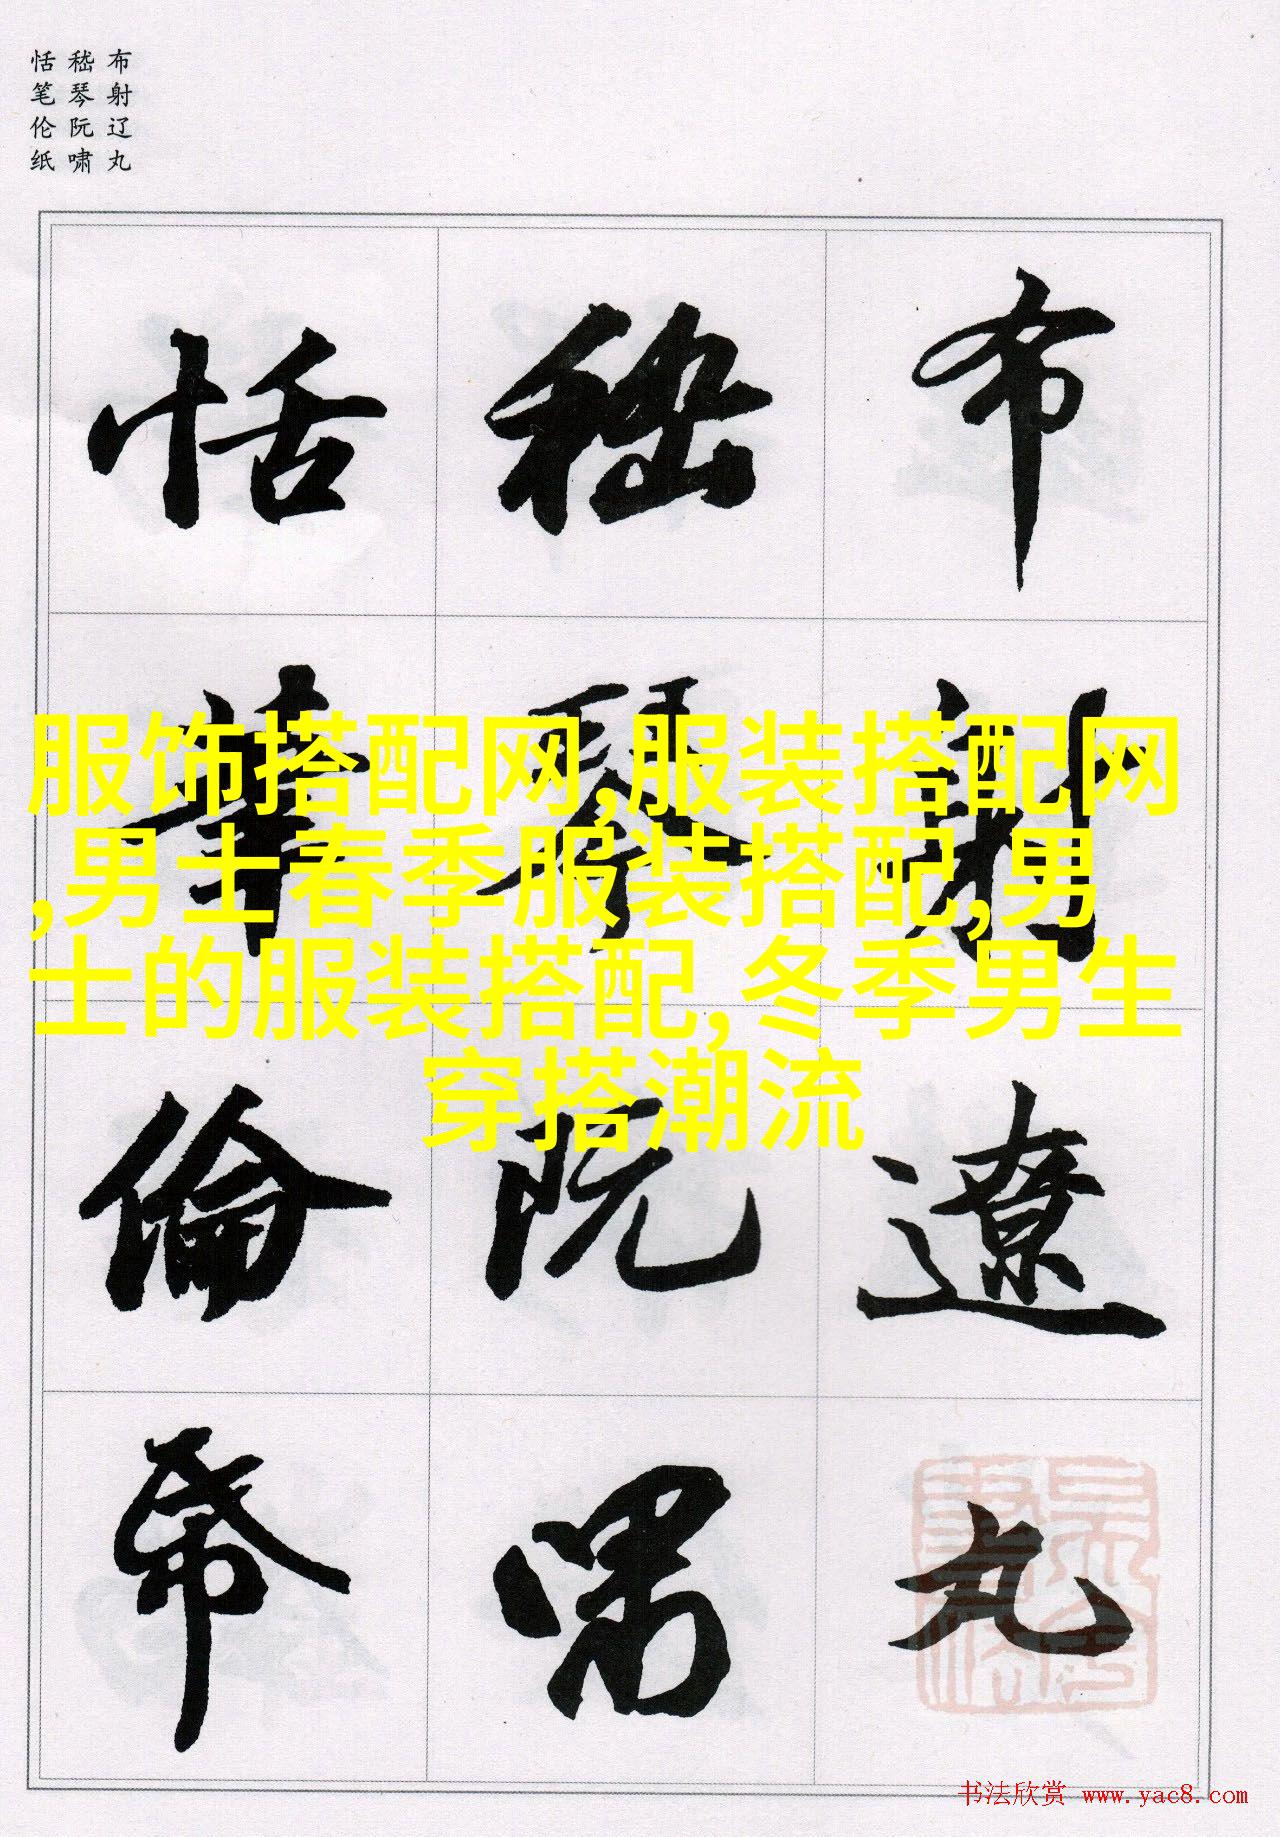 布射辽丸
嵇琴阮啸
恬笔伦纸
布射遼丸
嵇琴阮嘯
恬筆倫帋
服饰搭配网,服装搭配网
,男士春季服装搭配,男
士的服装搭配,冬季男生
穿搭潮流
书法欣赏 www.yac8.com